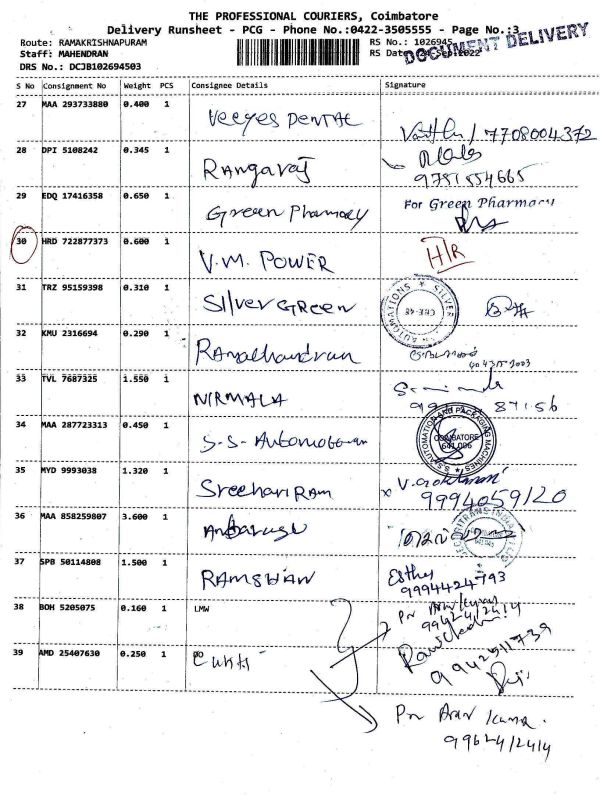 THE PROFESSIONAL COURIERS, Coimbatore
Delivery Runsheet - PCG - Phone No.:0422-3505555 - Page No.:3
Route: RAMAKRISHNAPURAM RS No.: 1026945
Staff: MAHENDRAN RS Date: 24 Sep 2022
DOCUMENT DELIVERY
DRS No.: DCJB102694503
S No Consignment No Weight PCS Consignee Details Signature
27 MAA 293733880 0.400 1 Veeyes DENTAL
7708004372
28 DPI 5108242 0.345 1 Rangaraj
9751554665
29 EDQ 17416358 0.650 1 Green Pharmacy For Green Pharmacy
30 HRD 722877373 0.600 1 V.M. POWER H/R
31 TRZ 95159398 0.310 1 Silver GREEN
AUTOMATIONS ★ SILVER
CBE-48
32 KMU 2316694 0.290 1 Ramachandran
33 TVL 7687325 1.550 1 NIRMALA
34 MAA 287723313 0.450 1 S-S- Automation
S.S AUTOMATION AND PACKAGING MACHINES
COIMBATORE
641 006
35 MYD 9993038 1.320 1 Sreehari Ram
9994059120
36 MAA 858259807 3.600 1
37 SPB 50114808 1.500 1 RAMSHAN Esther
9994424793
38 BOH 5205075 0.160 1 LMW
9962412414
39 AMD 25407630 0.250 1
9942511739
Arun Kumar
9962412414